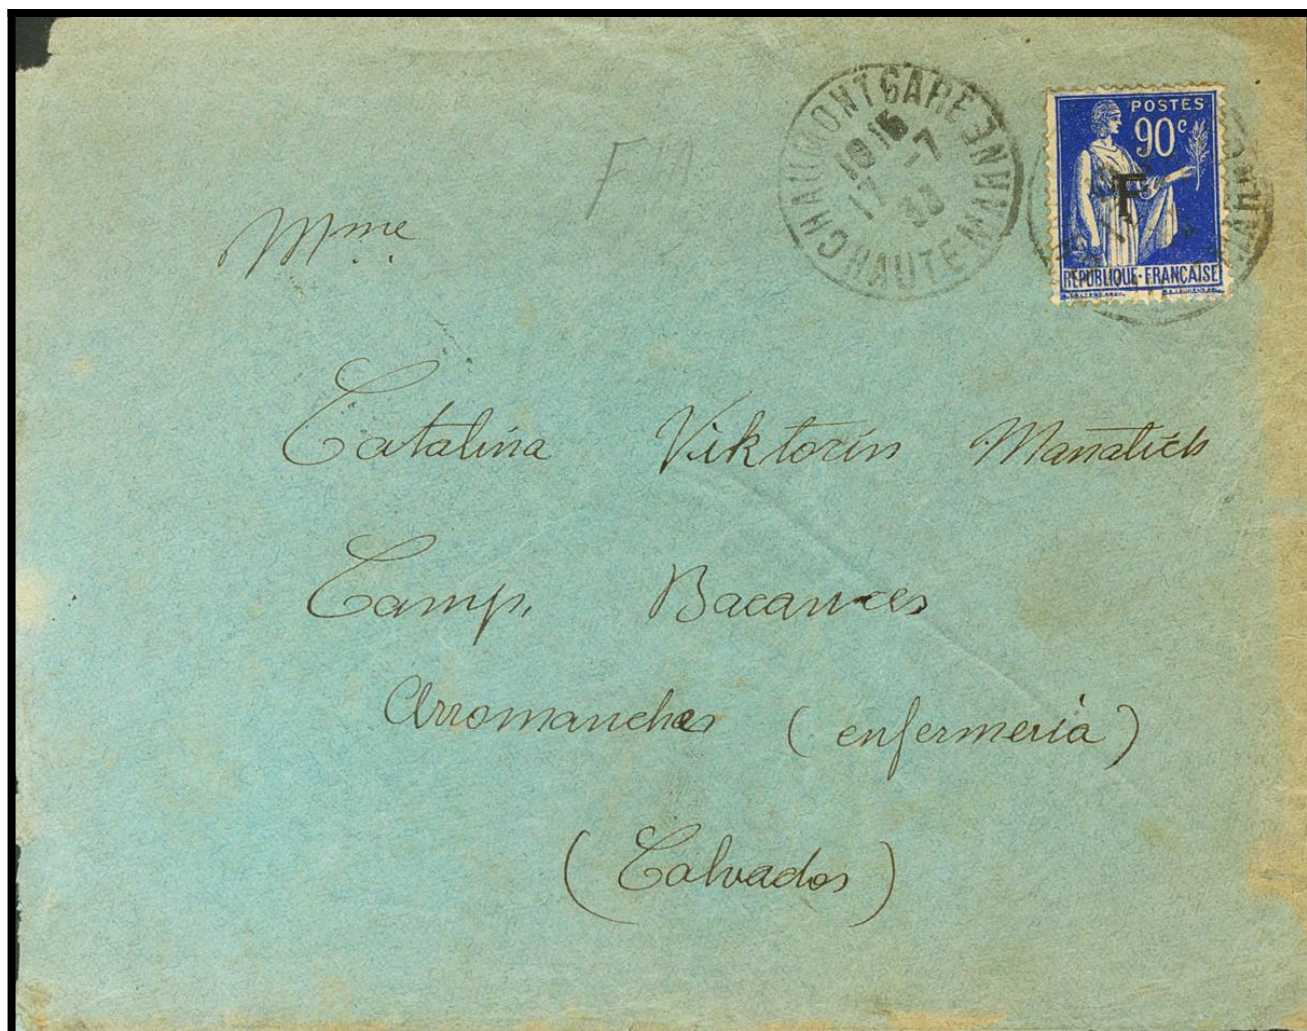 CHAUMONT GARE
1915
17 - 7
39
HAUTE MARNE
POSTES
90c
F
REPUBLIQUE·FRANÇAISE
F
Mme
Catalina Viktorin Manatich
Camp. Bacances
Arromanches (enfermeria)
(Calvados)